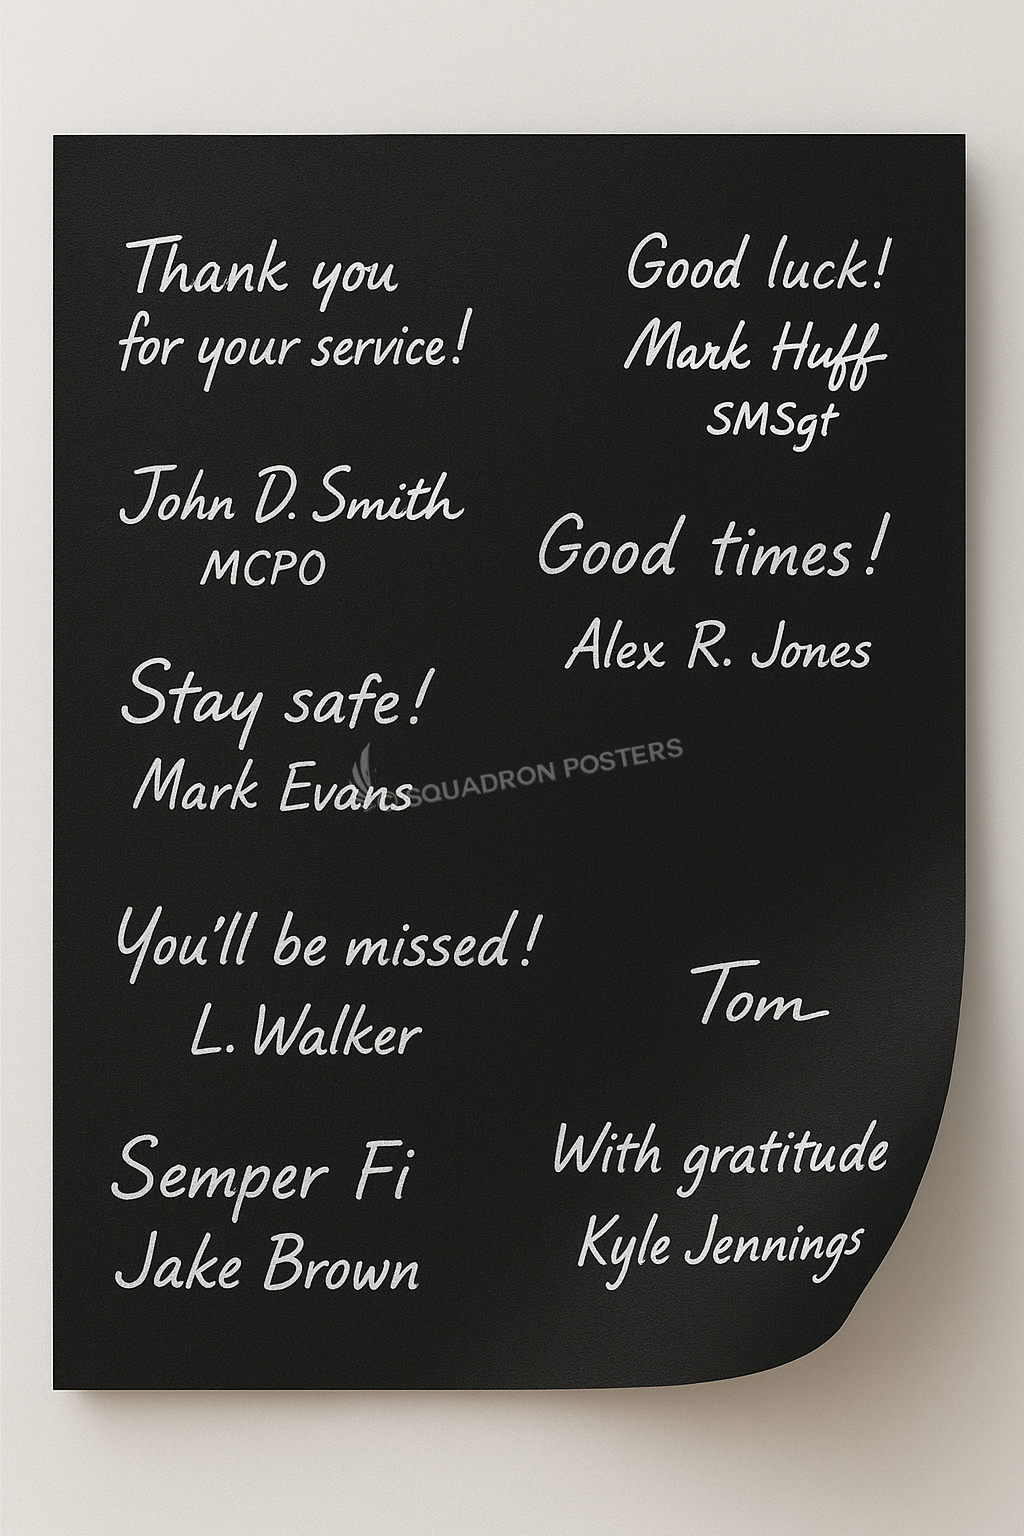 Thank you
for your service!
John D. Smith
MCPO
Stay safe!
Mark Evans
You'll be missed!
L. Walker
Semper Fi
Jake Brown
Good luck!
Mark Huff
SMSgt
Good times!
Alex R. Jones
SQUADRON POSTERS
Tom
With gratitude
Kyle Jennings